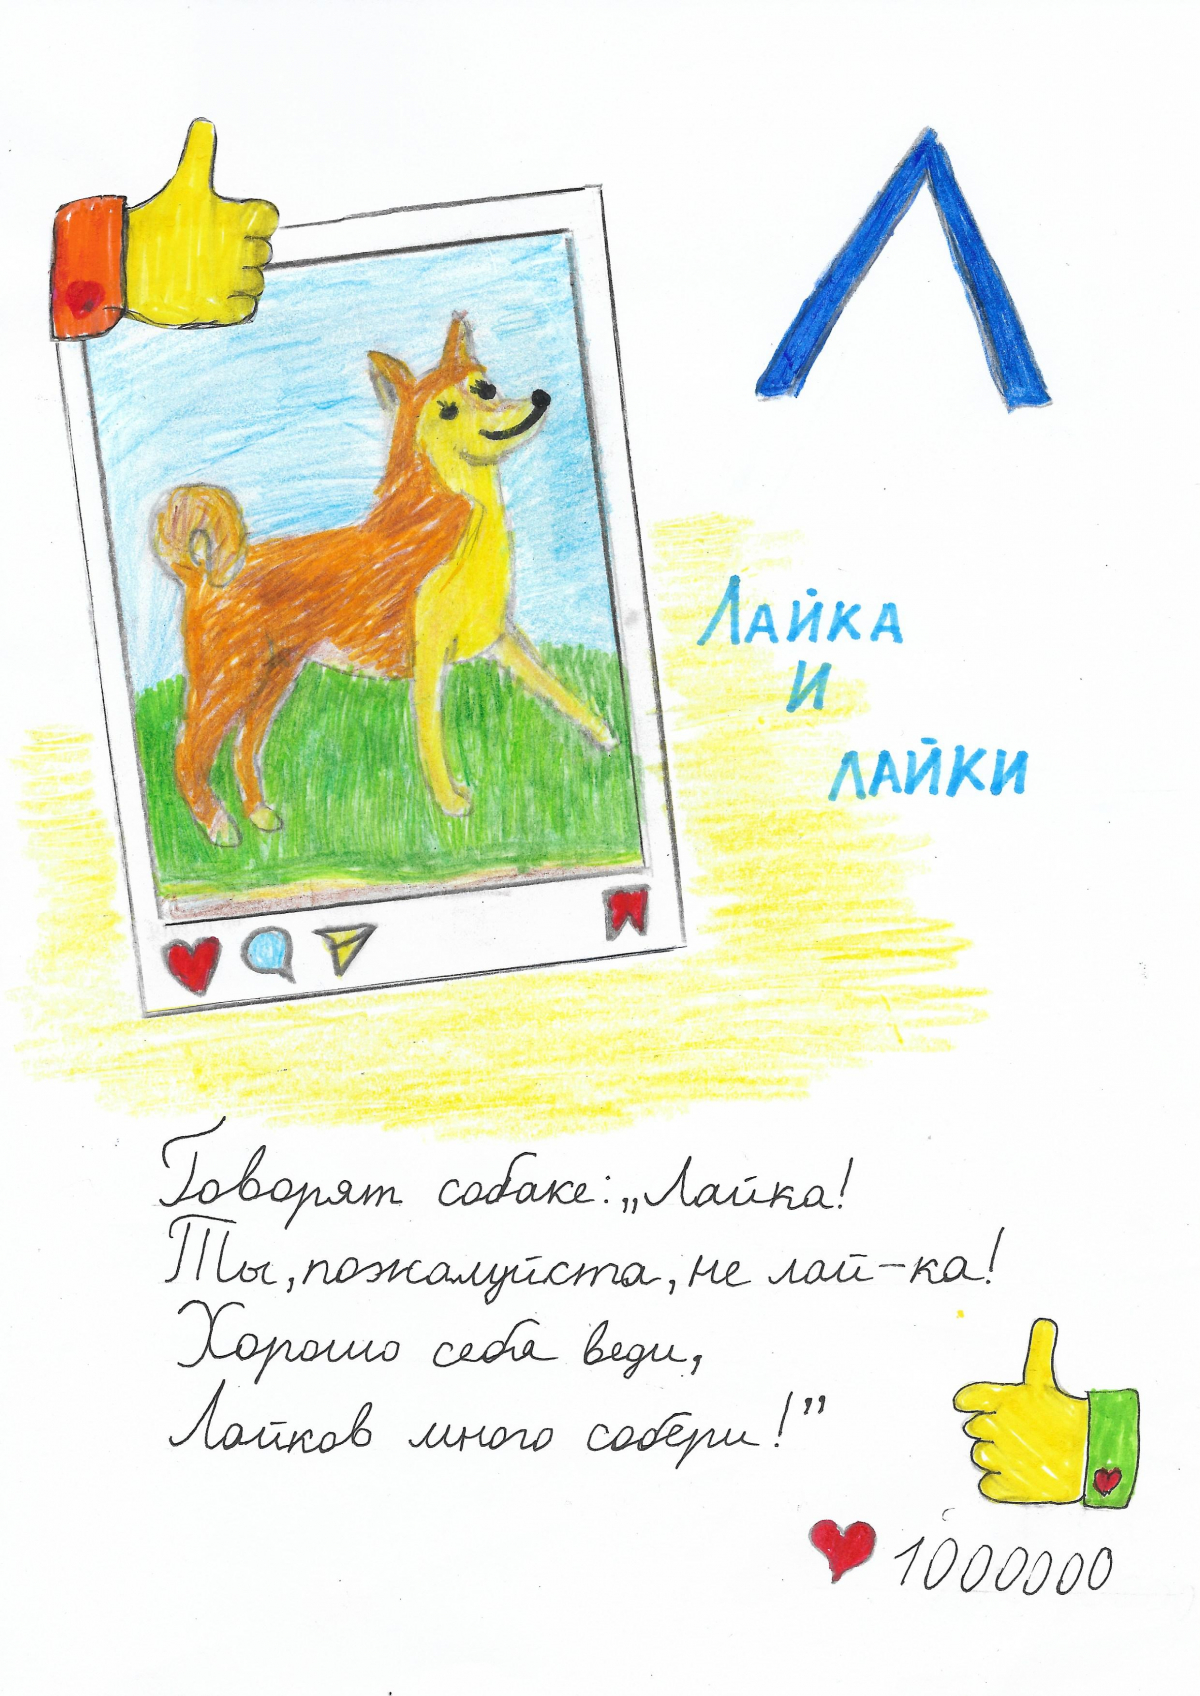 Л
Лайка
и
лайки
Говорят собаке: „Лайка!
Ты, пожалуйста, не лай-ка!
Хорошо себя веди,
Лайков много собери!”
1000000